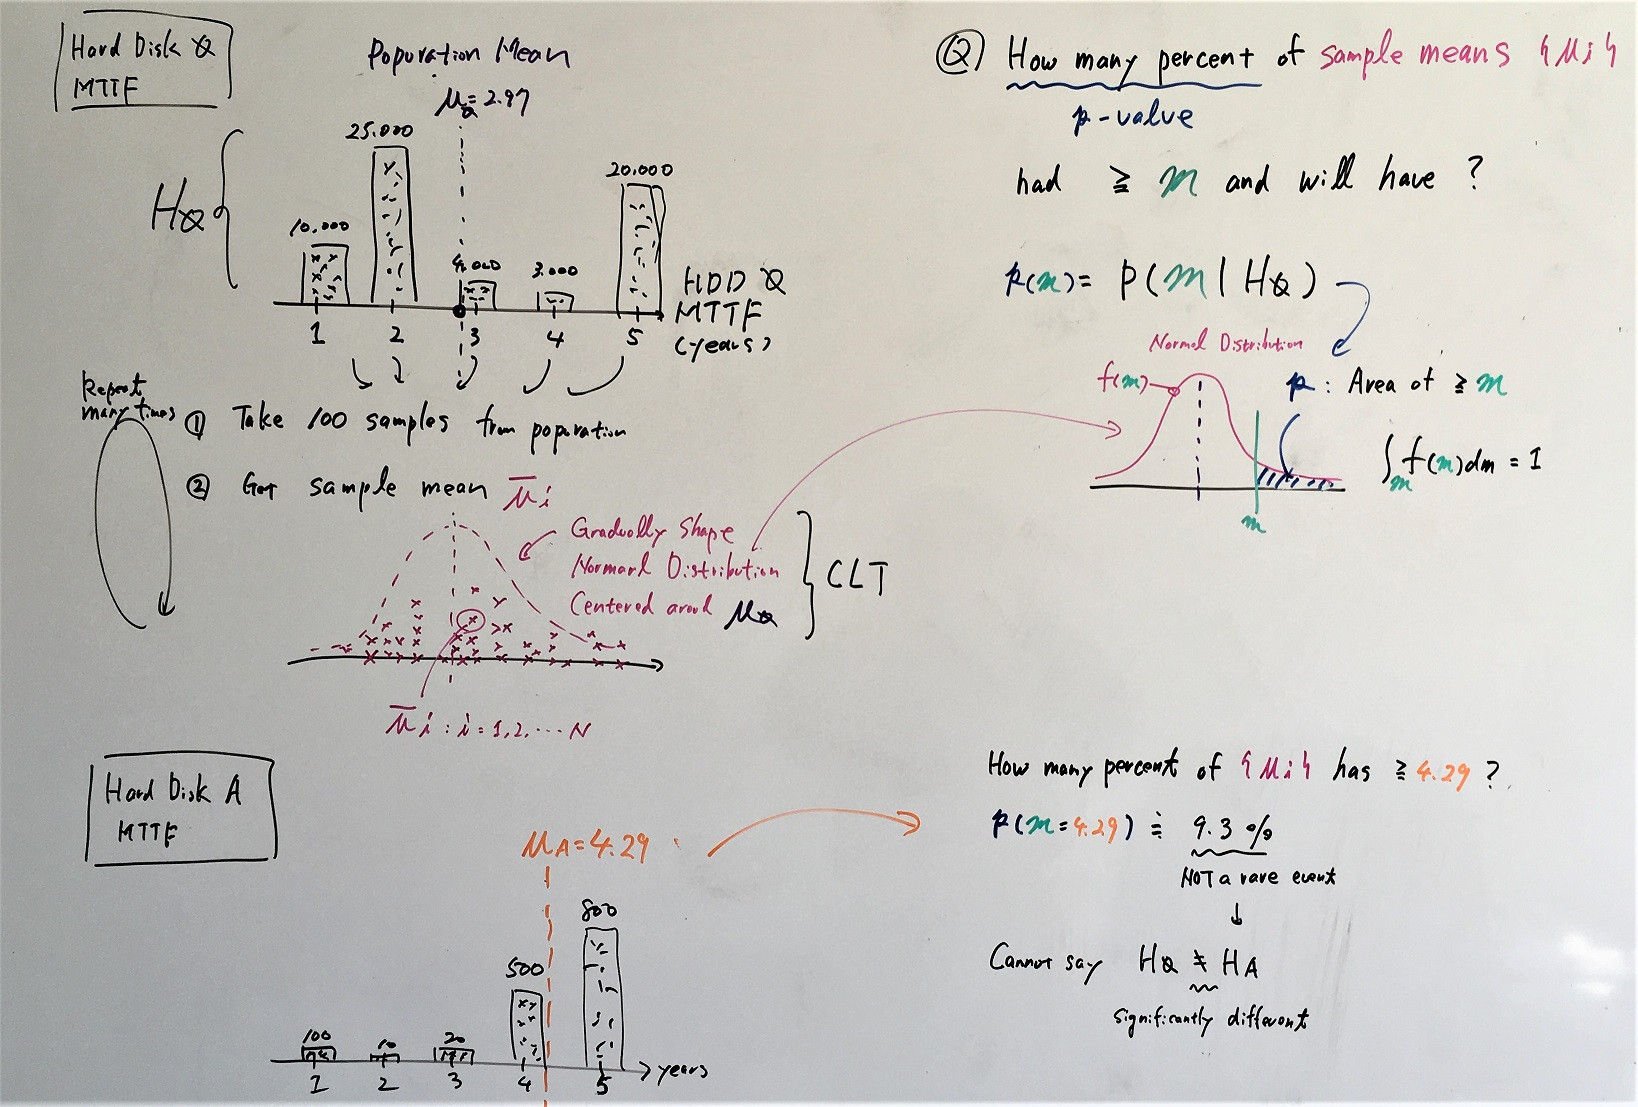 Hard Disk Q
MTTF
Popuration Mean
μQ = 2.97
HQ
10.000
25.000
4.000
3.000
20.000
1 2 3 4 5
HDD Q
MTTF
(years)
Repeat
many times
① Take 100 samples from poporation
② Get sample mean μ̅i
Gradually Shape
Normarl Distribution
Centered aroud μQ
CLT
μ̅i : i = 1,2, ... N
Hard Disk A
MTTF
μA = 4.29
100
10
20
500
800
1 2 3 4 5
years
Ⓠ How many percent of sample means {μi}
p-value
had ≧ m and will have ?
p(m) = P(m | HQ)
Normal Distribution
f(m)
p : Area of ≧ m
m
∫m f(m)dm = 1
How many percent of {μi} has ≧ 4.29 ?
p(m = 4.29) ≒ 9.3 %
NOT a rare event
↓
Cannot say HQ ≠ HA
significantly different